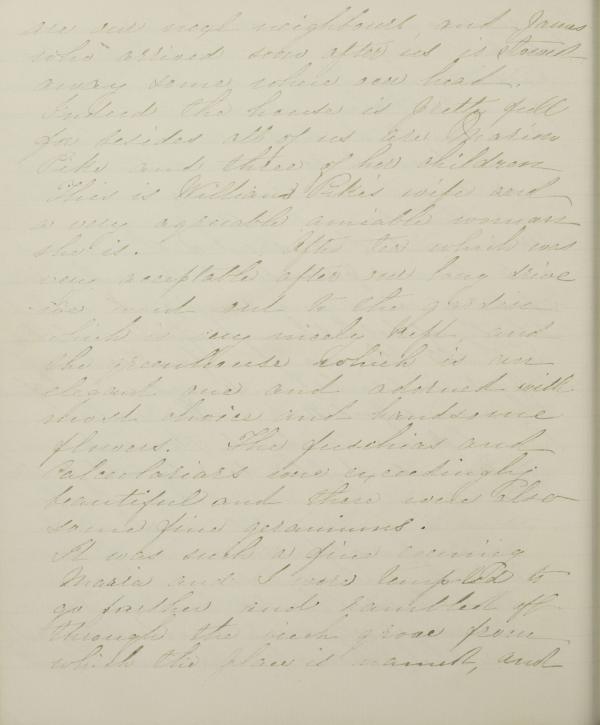 are our next neighbours, and James
who arrived soon after us is stowed
away some where over head.
Indeed the house is pretty full
for besides all of us are
Pike and three of her children
This is William Pike's wife and
a very agreeable amiable woman
she is. After tea which was
very acceptable after our long drive
we went out to the garden
which is very nicely kept, and
the greenhouse which is an
elegant one and adorned with
most choice and handsome
flowers. The fuschias and
Calceolarias were exceedingly
beautiful and there were also
some fine geraniums.
It was such a fine evening
Maria and I were tempted to
go farther and rambled off
through the grove from
which the place is named, and